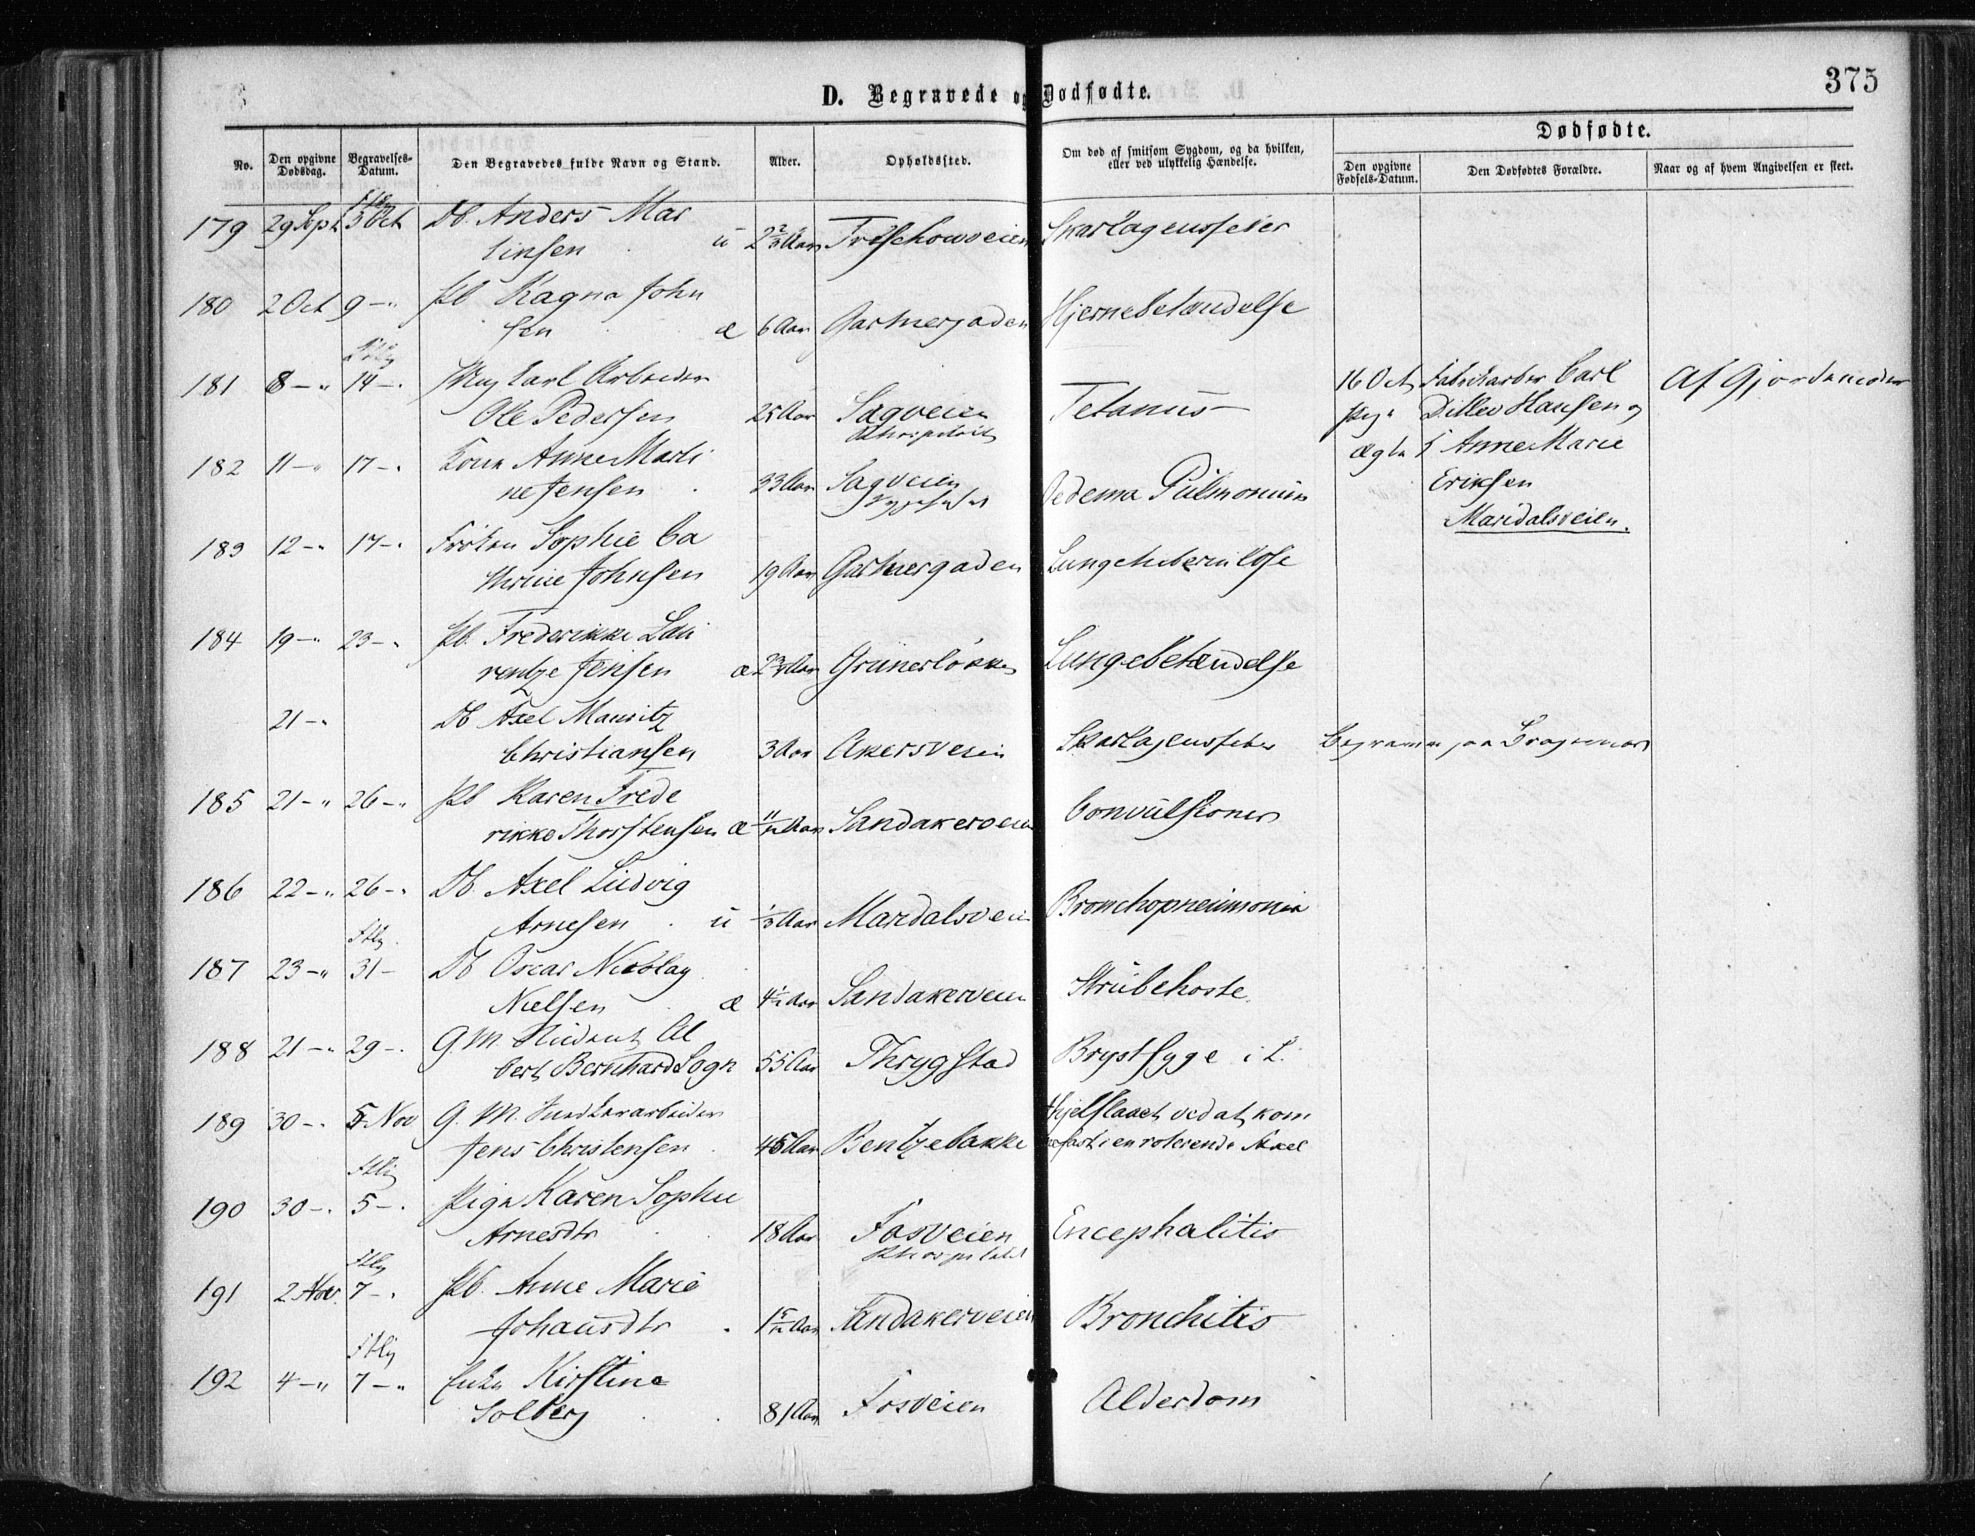 375
D. Begravede og Dødfødte.
No. Den opgivne Dødsdag. Begravelses-Datum. Den Begravedes fulde Navn og Stand. Alder. Opholdssted. Om død af smitsom Sygdom, og da hvilken, eller ved ulykkelig Hændelse. Dødfødte.
Den opgivne Fødsels-Datum. Den Dødfødtes Forældre. Naar og af hvem Angivelsen er skeet.
179 29 Sept 3 Oct Db. Anders Mar
tinsen u 2 2/3 Aar Trøschowveien Skarlagensfeber
180 2 Oct 9 -" Pb Ragna John
sen æ 6 Aar Gartnergaden Hjernebetændelse
181 8 -" 14 -" Ung Karl Arbeider
Ole Pedersen 25 Aar Sagveien Tetanus
16 Oct Fabrikarbr Carl Af Gjordemoder
Pige Ditlev Hansen og
ægte Anne Marie
Eriksen
Maridalsveien.
182 11 -" 17 -" Kone Anne Marti
ne Jensen 33 Aar Sagveien Oedema Pulmonum
183 12 -" 17 -" Frøken Sophie Ca
thrine Johnsen 19 Aar Gartnergaden Lungetuberculose
184 19 -" 23 -" Pb. Frederikke Lau
rentze Jensen æ 2 3/4 Aar Grünerløkken Lungebetændelse
21 -" Db Axel Mauritz
Christiansen 3 Aar Akersveien Skarlagensfeber Begraven paa Bragernes
185 21 -" 26 -" Pb Karen Frede
rikke Thorstensen æ 11/12 Aar Sandakerveien Convulsioner
186 22 -" 26 -" Db. Axel Ludvig
Arnesen u 1/3 Aar Maridalsveien Bronchopneumonia
187 23 -" 31 - Db Oscar Nicolay
Nielsen æ 4 1/2 Aar Sandakerveien Strubehoste.
188 21 -" 29 -" G.M. Student Al
bert Bernhard Sogn 55 Aar Thrygstad Brystsyge i L.
189 30 -" 5 Nov G.M.
Jens Christensen 45 Aar Bentzebakke Ihjelslaaet ved at kom
me fast i en roterende Axel
190 30 -" 5 -" Pige Karen Sophie
Arnesdtr 18 Aar Fosveien Encephalitis
191 2 Nov. 7 -" Pb. Anne Marie
Johansdtr 1 5/12 Aar Sandakerveien Bronchitis
192 4 -" 7 -" Enke Kirstine
Solberg 81 Aar Fosveien Alderdom